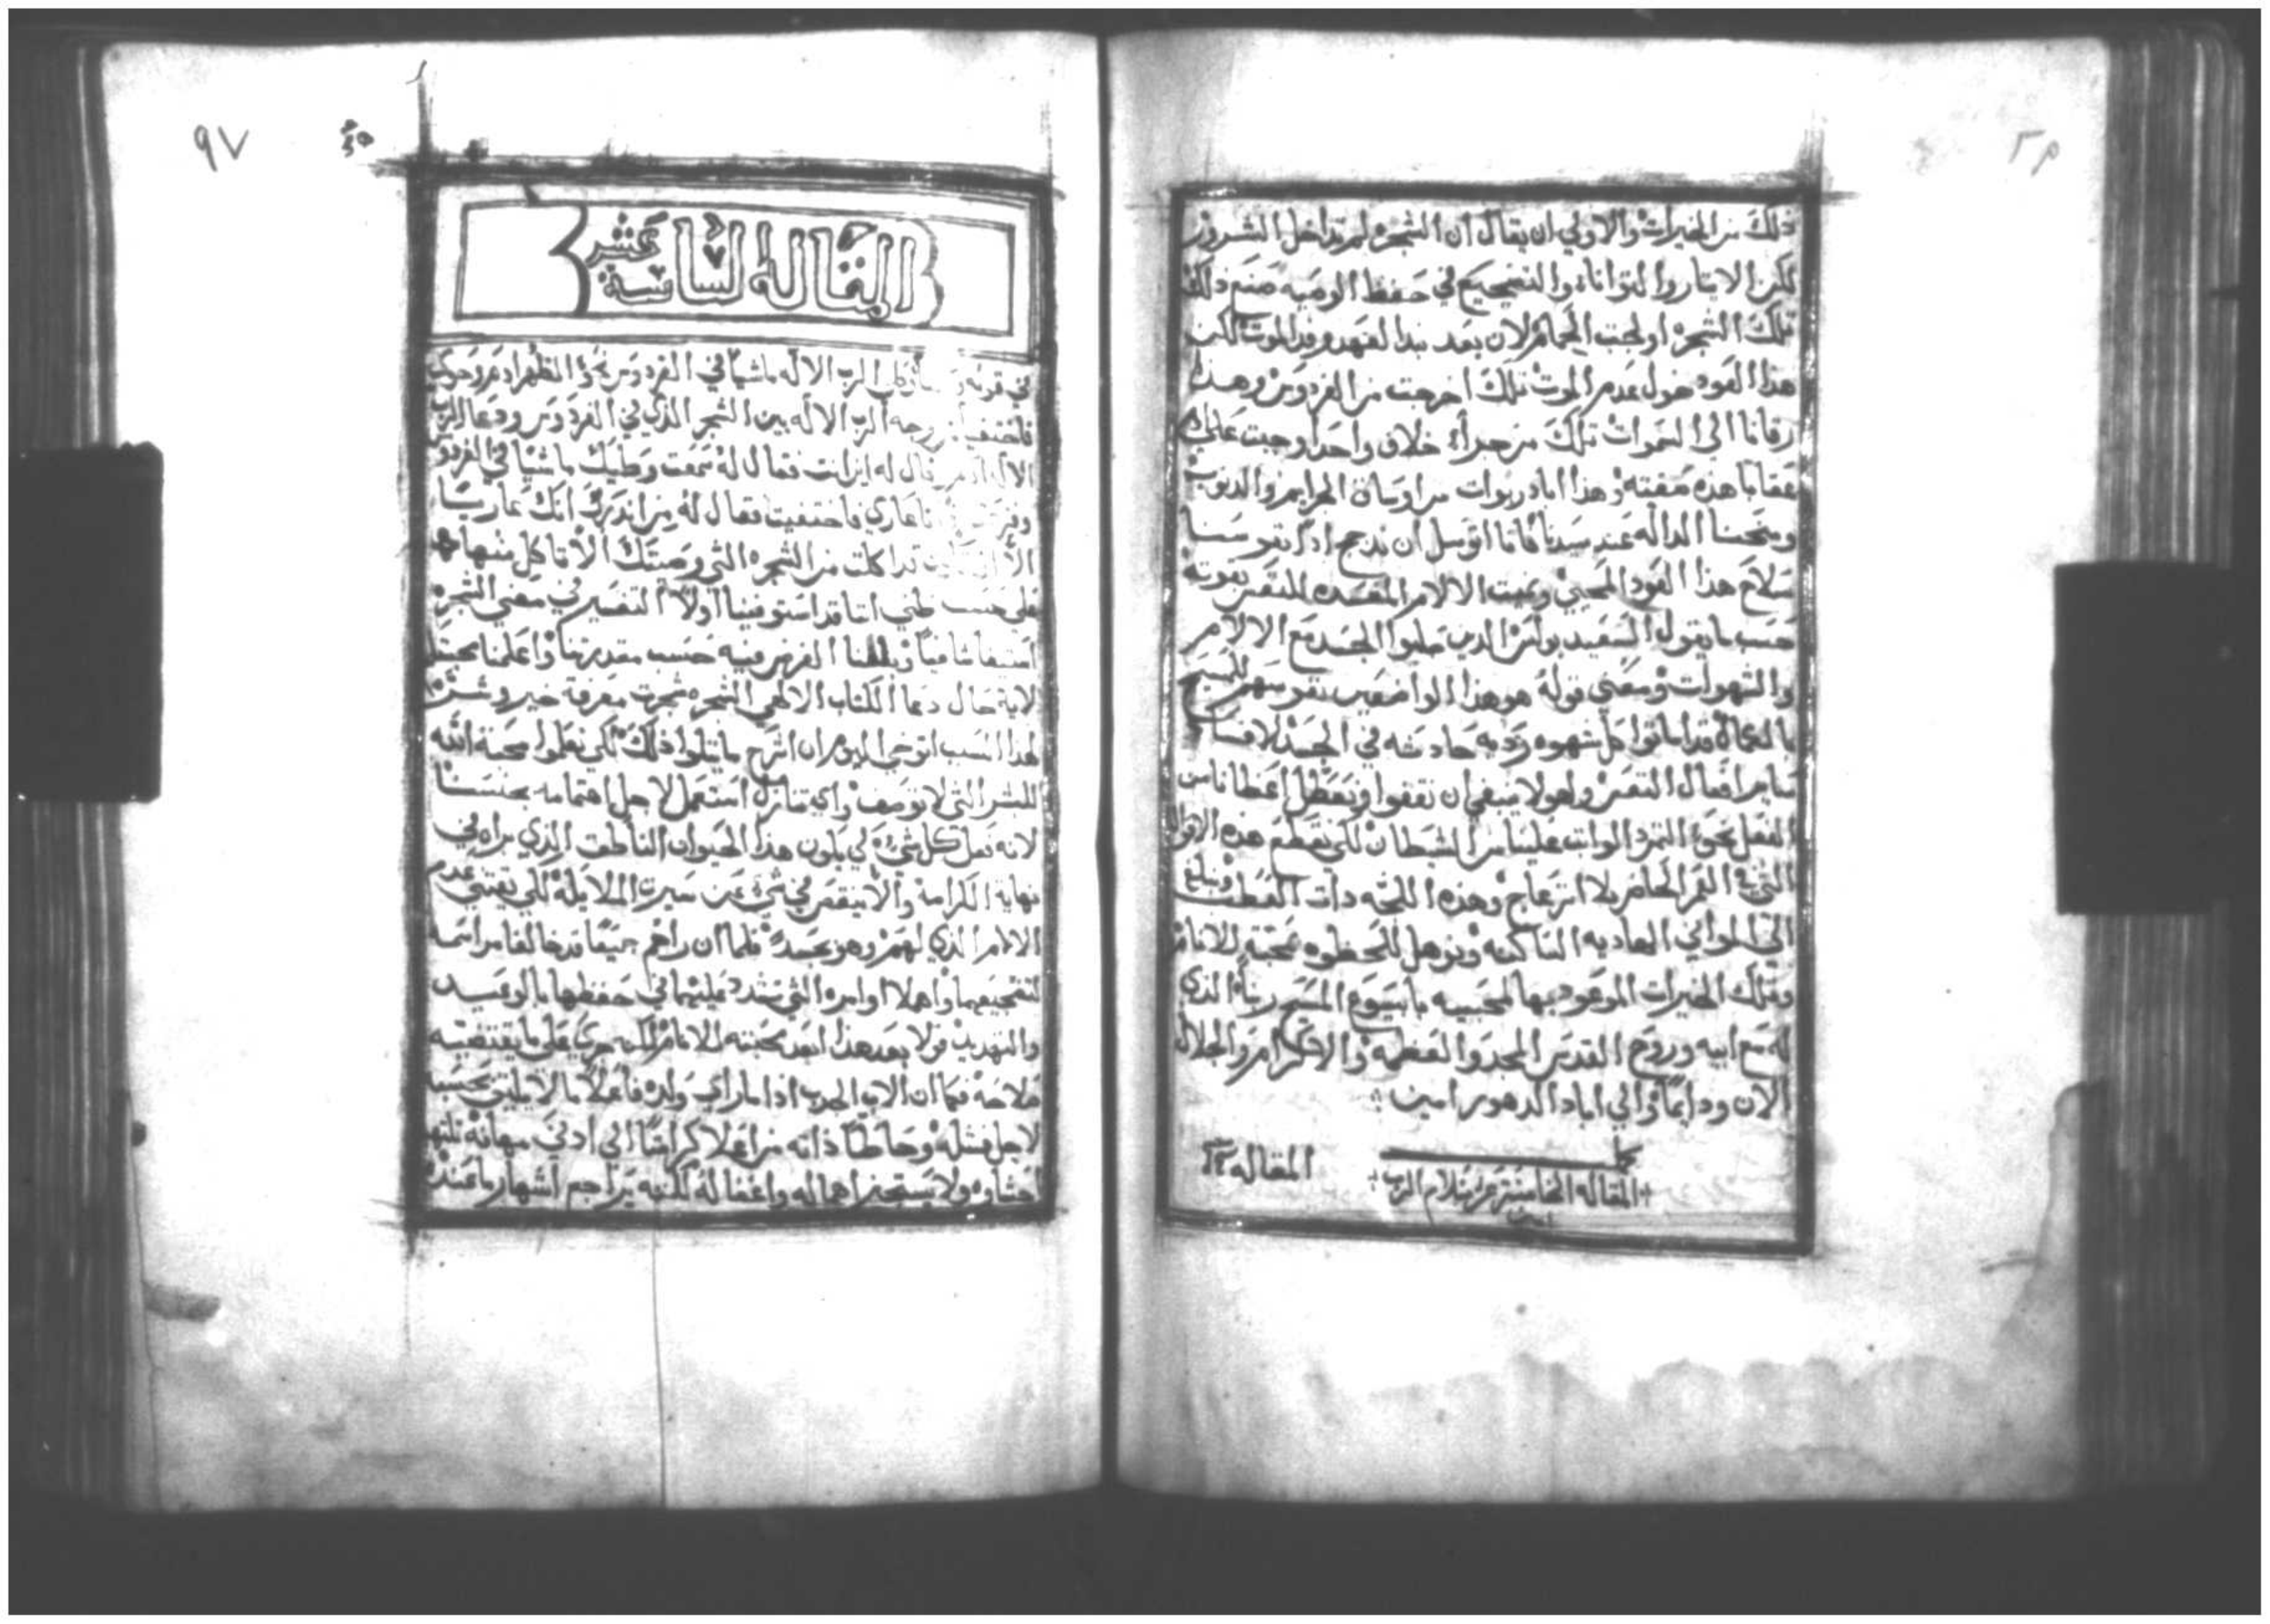 ذلك من الخيرات والاولي ان يقال ان الشجره لم تداخل الشرور
لكن الايتار والتواناء والتضجيع في حفظ الوصيه صنع ذلك
تلك الشجره اولجت الحمام لان بعد نبدا لعهد وفد الموت لكن
هذا العود خول عدم الموت تلك اخرجت من الفردوس وهذا
رقانا الي السموات تلك من جرأء خلاف واحد اوجبت علي
عقابا هذه صفته وهذا اباد ربوات من اوساق الجرايم والدنوب
ومنحنا الداله عند سيدنا فانا اتوسل ان ندجج اذا نفوسنا
سلاح هذا العود المحيي ونميت الالام المفسده للنفس بقوته
حسب ما يقول السعيد بولس الدين صلبوا الجسد مع الالام
والشهوات ومعني قوله هو هذا الواضعين نفوسهم للمسيح
بالعماله قد اماتوا كل شهوه رديه حادثه في الجسد لافساد
ساير افعال النفس واهولا ينبغي ان نقفوا ونعطل اعطاناس
الفعل نحو التمرد الواتب علينا من الشيطان لكي نقطع هذه الاقوال
التي في العمر الحاضر بلا انزعاج وهذه اللجه دات العطب ونبلغ
الي المواني الهاديه الساكنه ونوهل للحظوه بمحبته للانام
وتلك الخيرات الموعود بها لمحبيه بايسوع المسيح ربنا الذي
له مع ابيه وروح القدس المجد والعظمه والاكرام والجلال
الان ودايمًا والي اباد الدهور امين
المقاله
المقاله الخامسة عشر بسلام الرب
امين
٩٧
المقاله السادسة عشر
في قوله الرب الاله ماشيا في الفردوس نحو الظهر ادم وحوي
فاختفيا وجه الرب الاله بين الشجر الذي في الفردوس ودعا الرب
الاله ادم قال له اين انت فقال له سمعت وطيك ماشيا في الفردوس
عاري فاختفيت فقال له من اندرك انك عاريًا
الا قد اكلت من الشجره التي وصيتك الا تاكل منها
علي حسب ظني اننا قد استوفينا اولا التفسير في معني الشجره
استيفا شافيا وبلغنا الغرض فيه حسب مقدرتنا واعلمنا محبتكم
لاية حال دعا الكتاب الالهي الشجره شجرت معرفة خير وشر
لهذا السبب انوخي اليوم ان اشرح ما يتلوا ذلك لكي تعلموا محبة الله
للبشر التي لا توصف واي تنازل استعمل لاجل اهتمامه بجنسنا
لانه عمل كل شيء كي يكون هذا الحيوان الناطق الذي براه في
نهاية الكرامة والا ينقص في شي عن سيرت الملايكة لكي يقتني عدم
الالام الذي لهم وهو بجسد فلما ان راهم جميعًا قد خالفا مراسمه
لتضجيعهما واهملا اوامره التي تشدد عليهما في حفظها بالوعيد
والتهديد ولا بعد هذا ابعد محبته للانام لكنه جري علي ما يقتضيه
صلاحه فكما ان الاب المحب اذا ما راي ولده فاعلا ما لا يليق بحسبه
لاجل فشله وحاطا ذاته من اعلا كرامتنا الي ادني مهانة تلتهب
احشاوه ولا يستجيز اهماله واغفاله لكنه يراجم اشهار ما عنده